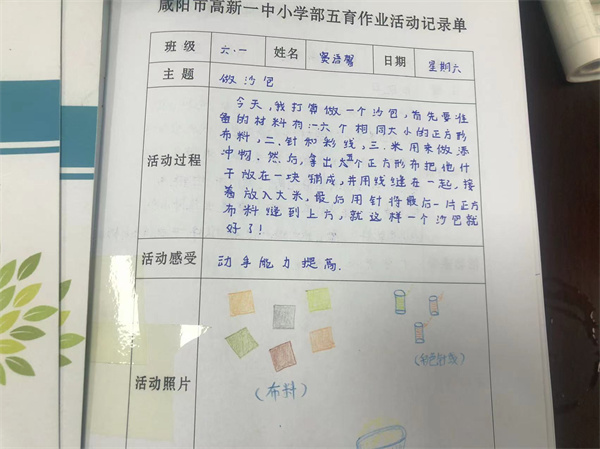 咸阳市高新一中小学部五育作业活动记录单
班级 六.一 姓名 日期 星期六
主题 做沙包
活动过程
今天,我打算做一个沙包,首先要准
备的材料有:一六个相同大小的正方形
布料,二.针和彩线,三.米用来做添
冲物.然后,拿出五个正方形布把他们
放在一块铺成,并用线缝在一起,接
着放入大米,最后用针将最后一片正方
布料缝到上方,就这样一个沙包就
好了!
活动感受 动手能力提高.
活动照片
(布料)